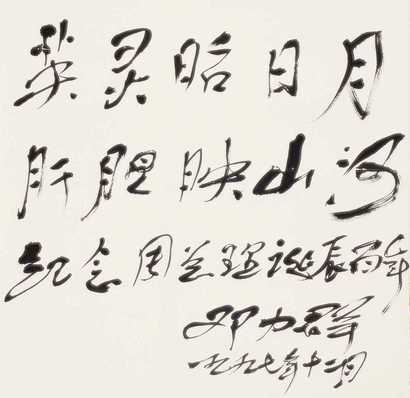 英灵昭日月
肝胆映山河
纪念周总理诞辰百年
邓力群
一九九七年十二月